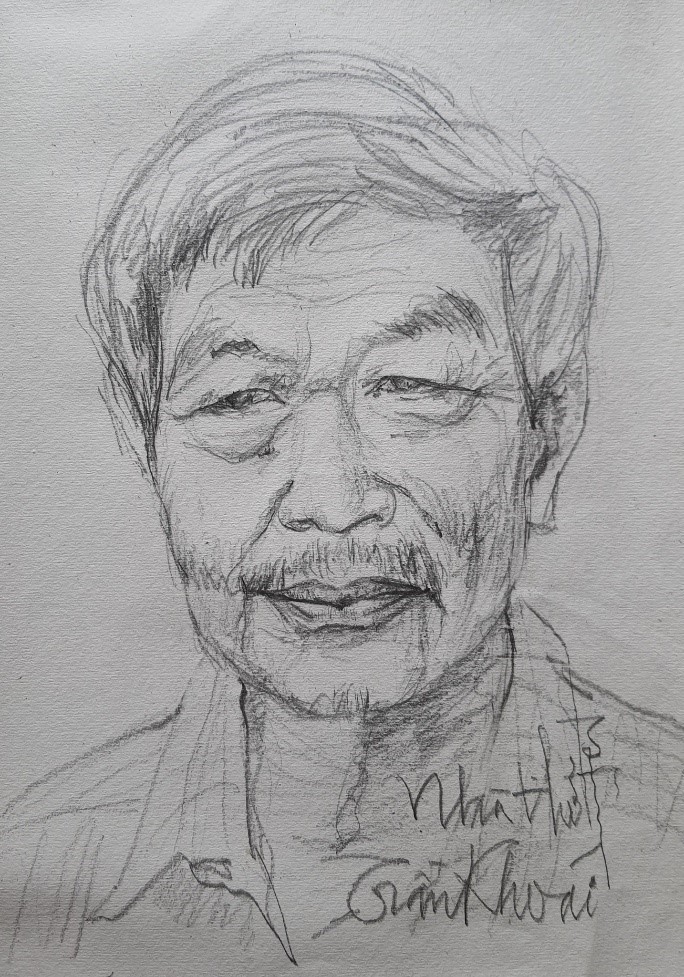 Nhà thơ
Trần Khoái